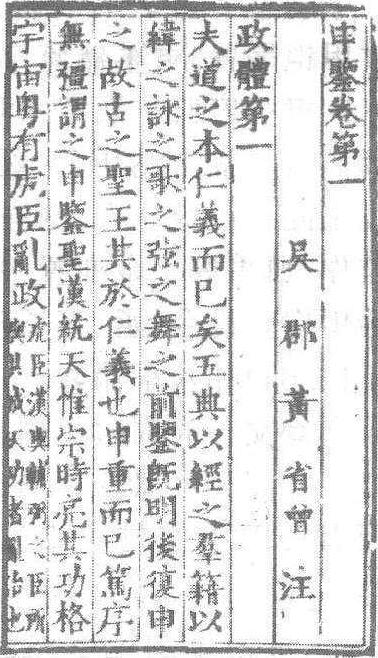 申鑒卷第一
吳郡黃省曾注
政體第一
夫道之本仁義而已矣五典以經之羣籍以
緯之詠之歌之弦之舞之前鑒旣明後復申
之故古之聖王其於仁義也申重而已篤序
無疆謂之申鑒聖漢統天惟宗時亮其功格
宇宙粤有虎臣亂政
虎臣漢興輔弼之臣所
與共成天功者亂治也